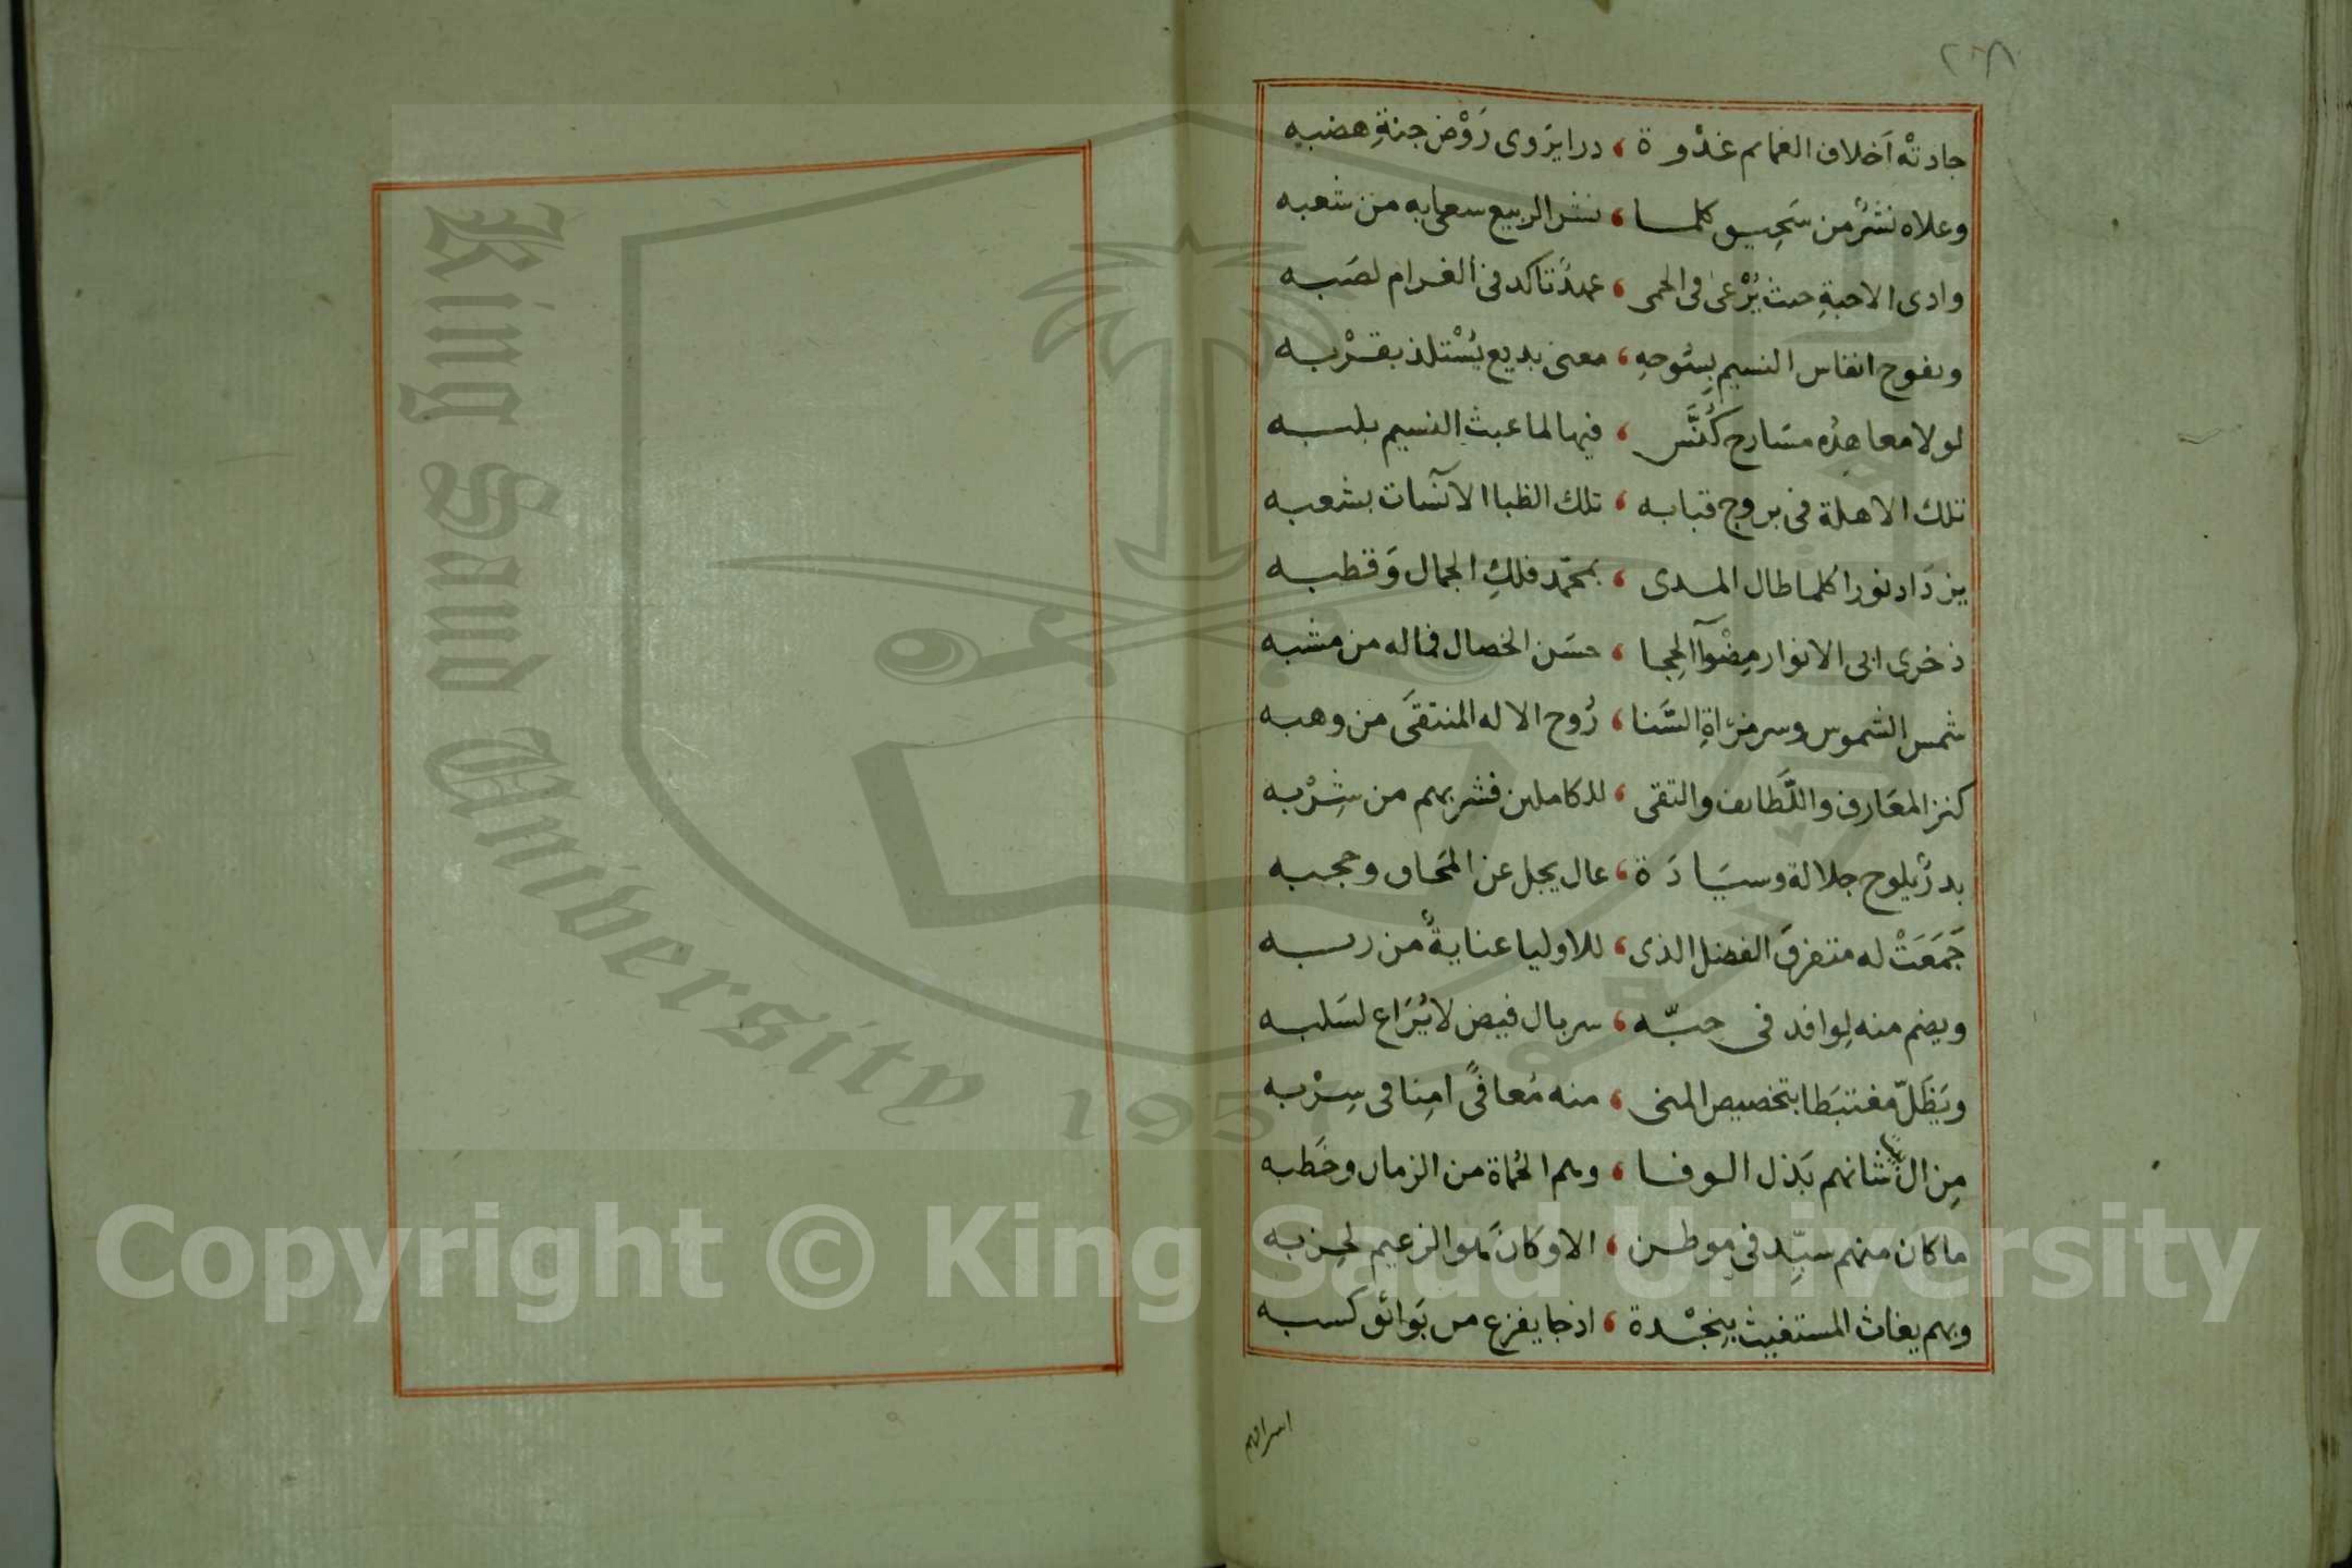 ٢٦٨
جادتْه اَخلاف الغمام غدْوة ، دررا يَروى رَوْض جنةِ هضبه
وعلاه نَشْرٌ من سَحِيق كلما ، نشر الربيع سعى به من شعبه
وادى الاحبةِ حيث يُرْعىٰ فى الحمى ، عهدٌ تاكد فى الغرام لصَبه
وبفوح انفاس النسيم بِسُوحِهِ ، معنى بديع يُسْتلذ بقرْبه
لولا معاهِدُه مسَارح كُنَّس ، فيها لما عبث النسيم بلبه
تلك الاهلة فى بروج قبابه ، تلك الظبا الآنسَات بشعبه
يزدَاد نورا كلما طال المدى ، بمحمّد فلكِ الجمال وَقطبه
ذخرى ابى الانوار مِضْوآ الحِجا ، حسَن الخصال فماله من مشبه
شمس الشموس وسر مرْاةِ السَّنا ، رُوح الاله المنتقىَ من وهبه
كنز المعَارف واللَّطَايف والتقى ، للكاملين فشربهم من شِرْبه
بدرٌ يلوح جلالة وسيَادَة ، عال يجل عن المحَاق وحجبه
جَمَعَتْ له متفرقَ الفضل الذى ، للاوليا عنايةٌ من ربه
ويضم منه لِوافد فى حِبّه ، سربال فيض لا يُرَاع لسَلبه
ويَظَلّ مغتبَطا بتخصيص المنى ، منه مُعافىً امِنا فى سِرْبه
مِن ال شانهم بَذل الوفا ، وهم الحُماة من الزمان وخَطبه
ما كان منهم سيِّد فى موطن ، الا وكانَ هو الزعيم لحِزبه
وبهم يغاث المستغيث بِنجْدة ، اذ جا يفزع من بَوائق كَسبه
King Saud University
1957
Copyright © King Saud University